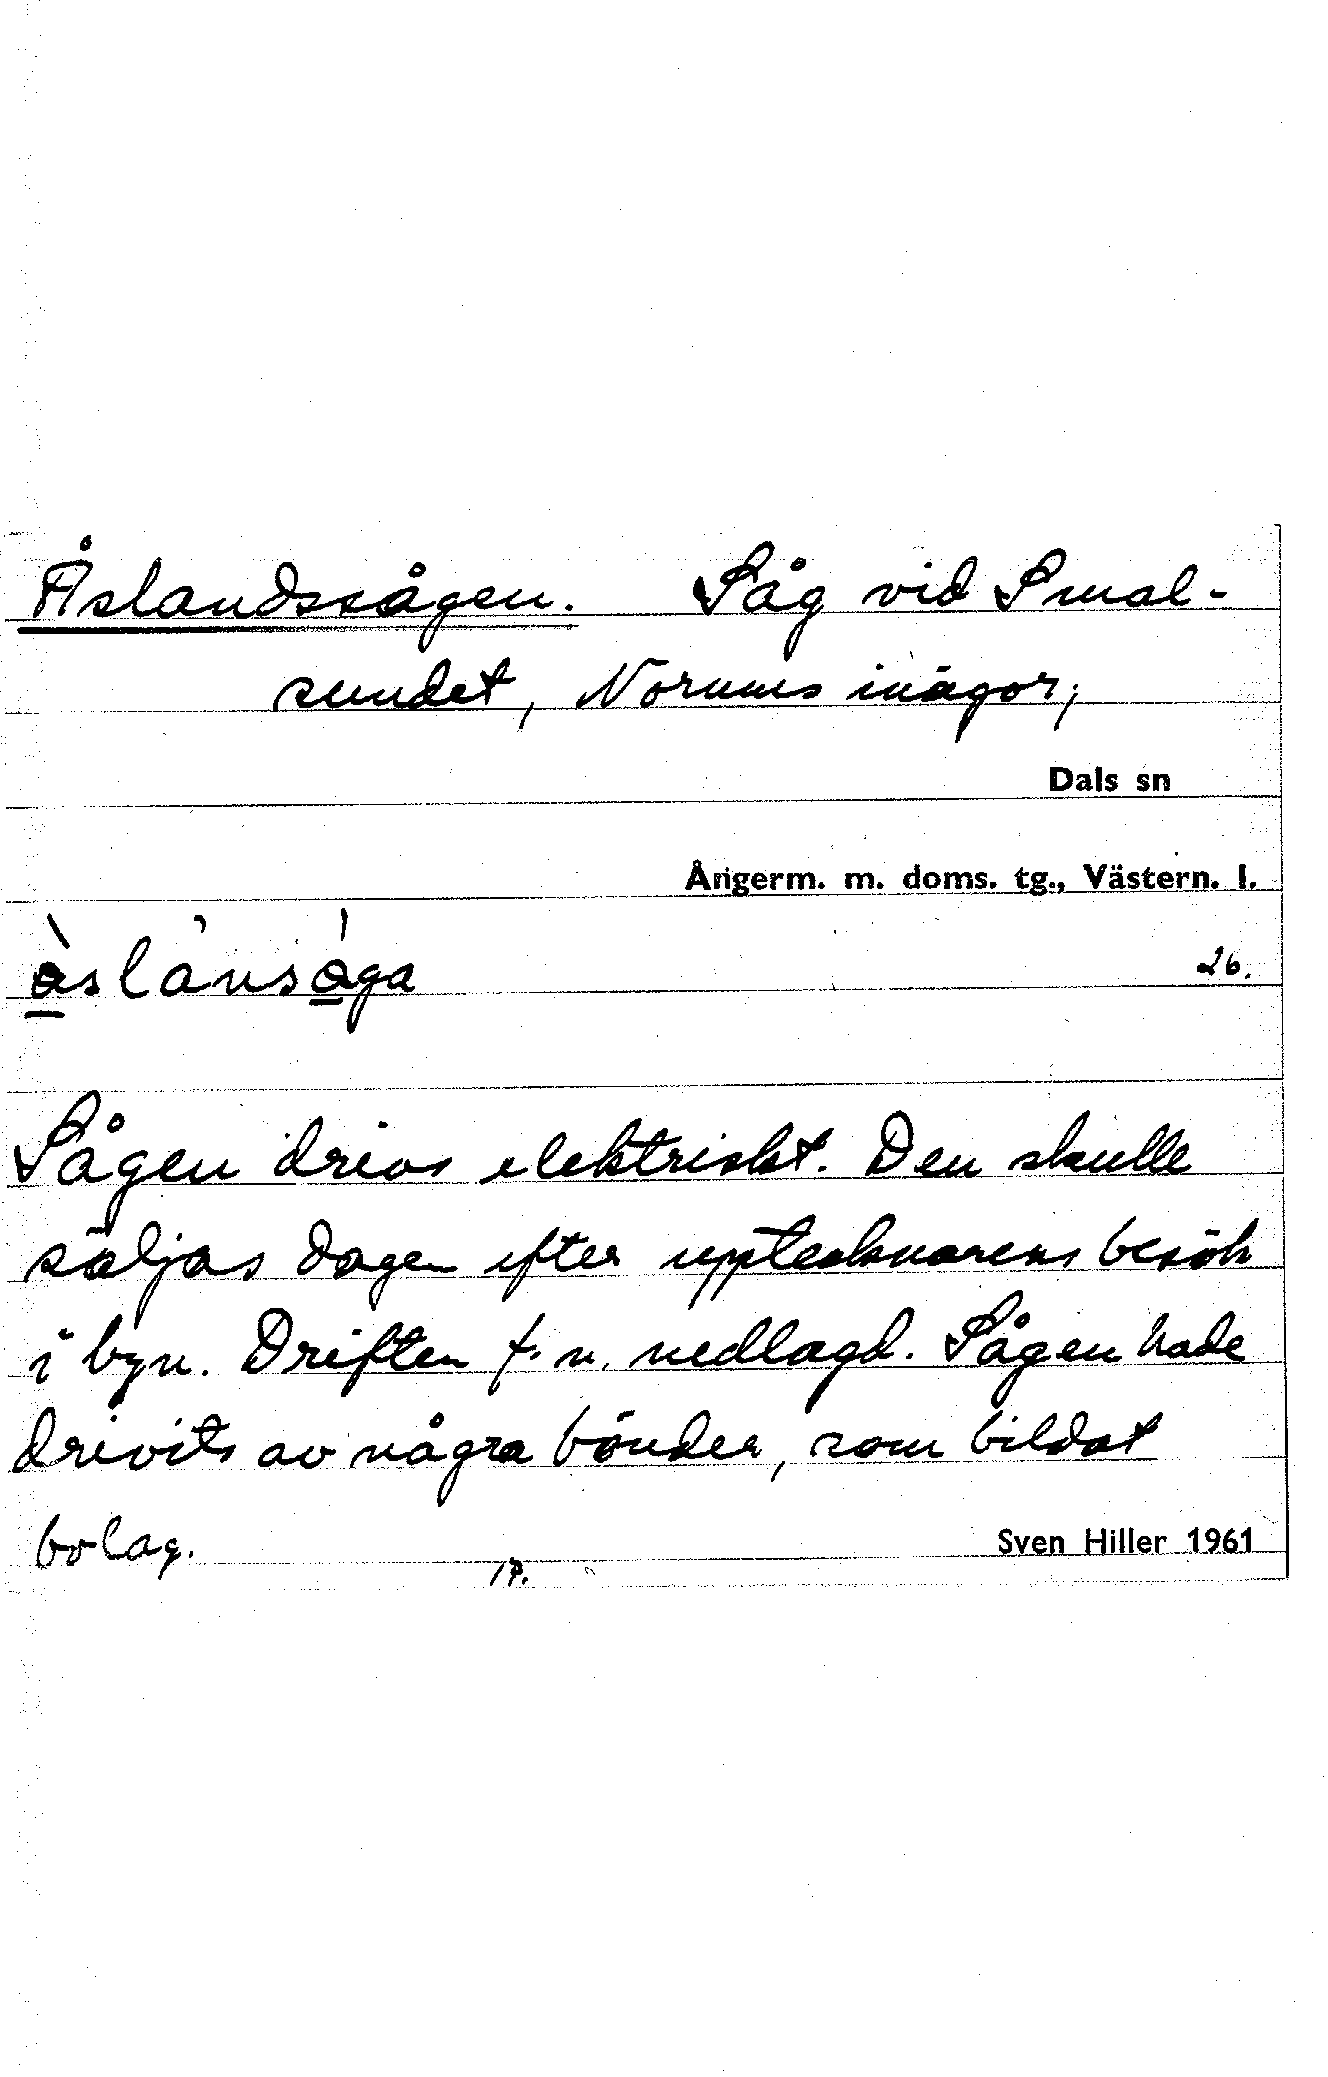 Åslandssågen. Såg vid Smal-
sundet, Norums inägor,
Dals sn
Ångerm. m. doms. tg., Västern. l.
åslånsåga 26.
Sågen drevs elektriskt. Den skulle
säljas dagen efter upptecknarens besök
i byn. Driften f.n. nedlagd. Sågen hade
drivits av några bönder, som bildat
bolag. Sven Hiller 1961
17.